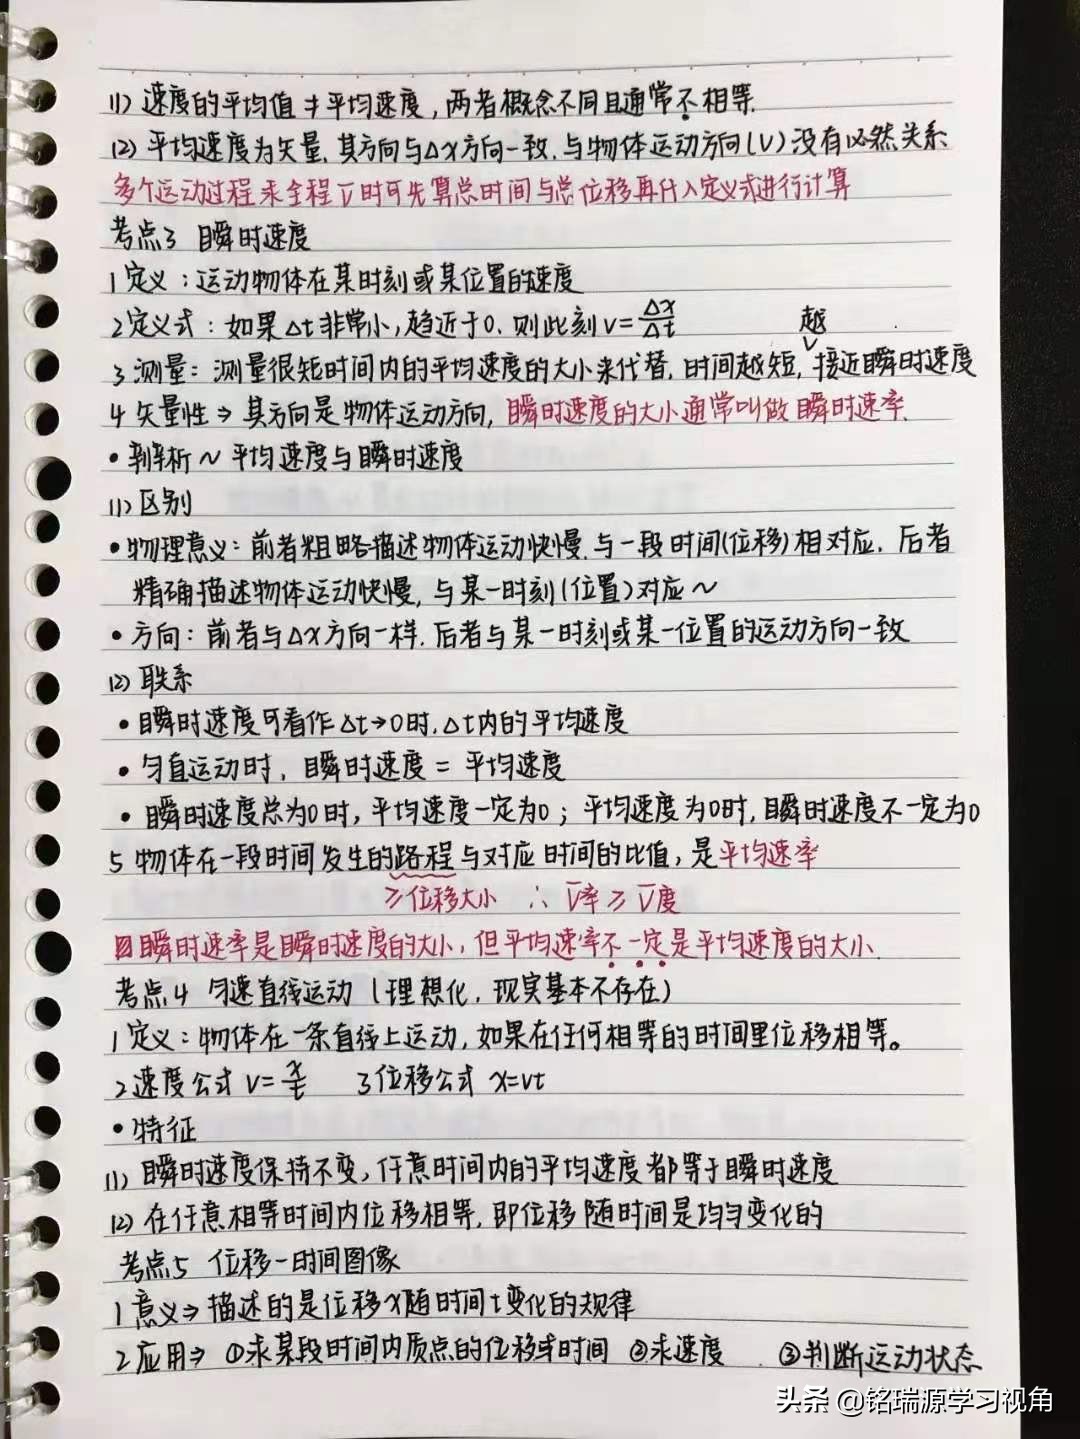 (1) 速度的平均值≠平均速度,两者概念不同且通常不相等.
(2) 平均速度为矢量,其方向与Δx方向一致,与物体运动方向(V)没有必然关系
多个运动过程求全程V̅时可先算总时间与总位移再代入定义式进行计算
考点3 瞬时速度
1 定义:运动物体在某时刻或某位置的速度
2 定义式:如果Δt非常小,趋近于0,则此刻 v=Δx/Δt
越
3 测量:测量很短时间内的平均速度的大小来代替,时间越短,接近瞬时速度
4 矢量性⇒其方向是物体运动方向,瞬时速度的大小通常叫做瞬时速率.
•辨析~平均速度与瞬时速度
(1) 区别
•物理意义:前者粗略描述物体运动快慢,与一段时间(位移)相对应.后者
精确描述物体运动快慢,与某一时刻(位置)对应~
•方向:前者与Δx方向一样.后者与某一时刻或某一位置的运动方向一致
(2) 联系
•瞬时速度可看作Δt→0时,Δt内的平均速度
•匀直运动时,瞬时速度=平均速度
•瞬时速度总为0时,平均速度一定为0;平均速度为0时,瞬时速度不一定为0
5 物体在一段时间发生的路程与对应时间的比值,是平均速率
≥位移大小 ∴V̅率≥V̅度
瞬时速率是瞬时速度的大小,但平均速率不一定是平均速度的大小.
考点4 匀速直线运动(理想化,现实基本不存在)
1 定义:物体在一条直线上运动,如果在任何相等的时间里位移相等。
2 速度公式 v=x/t 3 位移公式 x=vt
•特征
(1) 瞬时速度保持不变,任意时间内的平均速度都等于瞬时速度
(2) 在任意相等时间内位移相等,即位移随时间是均匀变化的
考点5 位移-时间图像
1 意义⇒描述的是位移x随时间t变化的规律
2 应用⇒①求某段时间内质点的位移或时间 ②求速度 ③判断运动状态
头条 @铭瑞源学习视角